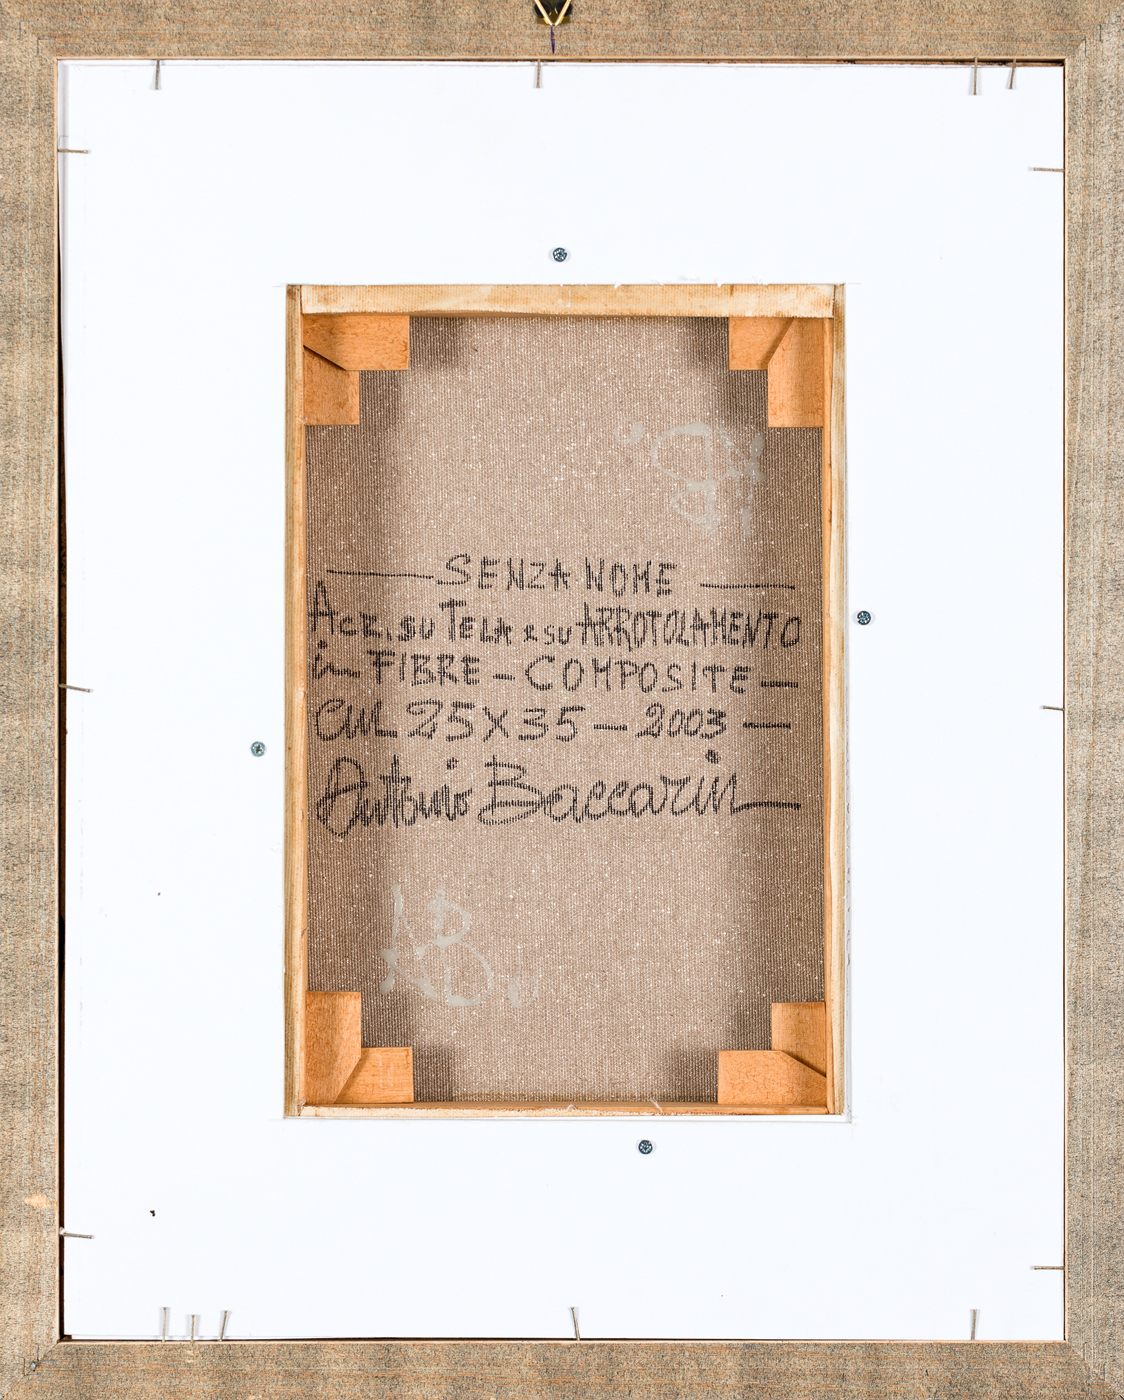 — SENZA NOME —
Acr. su Tela e su ARROTOLAMENTO
in FIBRE – COMPOSITE —
CM 25X35 — 2003 —
Antonio Baccarin